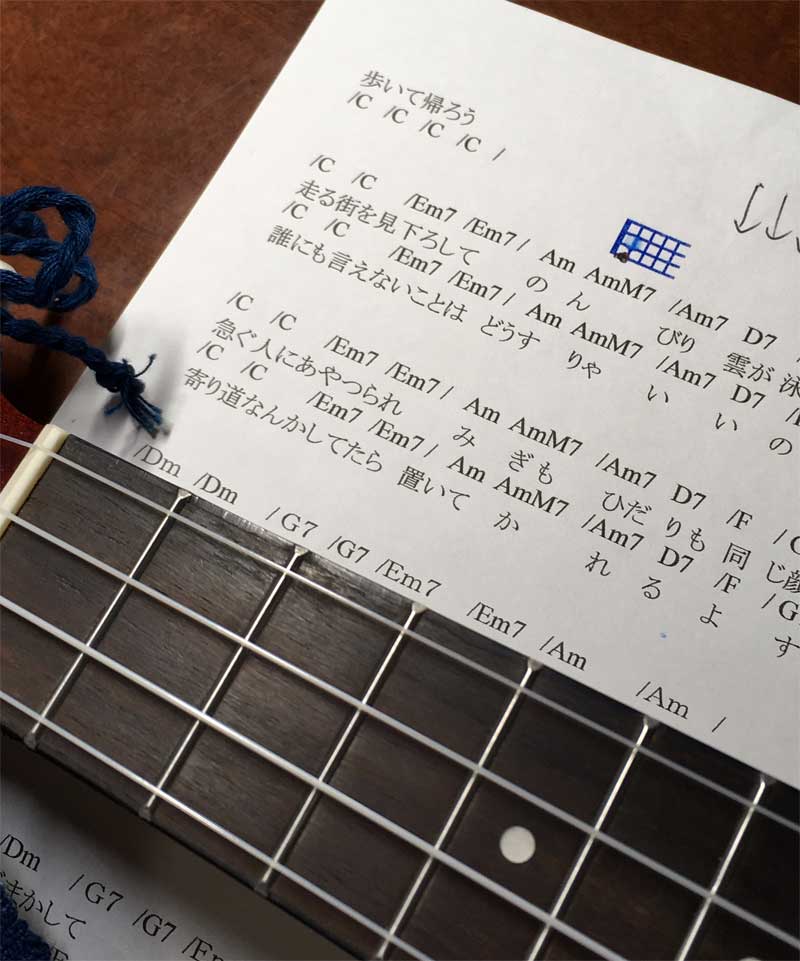 歩いて帰ろう
/C /C /C /C /
/C /C /Em7 /Em7 / Am AmM7 /Am7 D7 /
走る街を見下ろして の ん びり 雲が 泳
/C /C /Em7 /Em7 / Am AmM7 /Am7 D7
誰にも言えないことは どうす りゃ い い の
/C /C /Em7 /Em7 / Am AmM7 /Am7 D7 /F /
急ぐ人にあやつられ み ぎも ひだ りも 同 じ顔
/C /C /Em7 /Em7 / Am AmM7 /Am7 D7 /F /G
寄り道なんかしてたら 置いて か れ る よ す
/Dm /Dm /G7 /G7 /Em7 /Em7 /Am /Am /
/Dm /G7 /G7
きかして